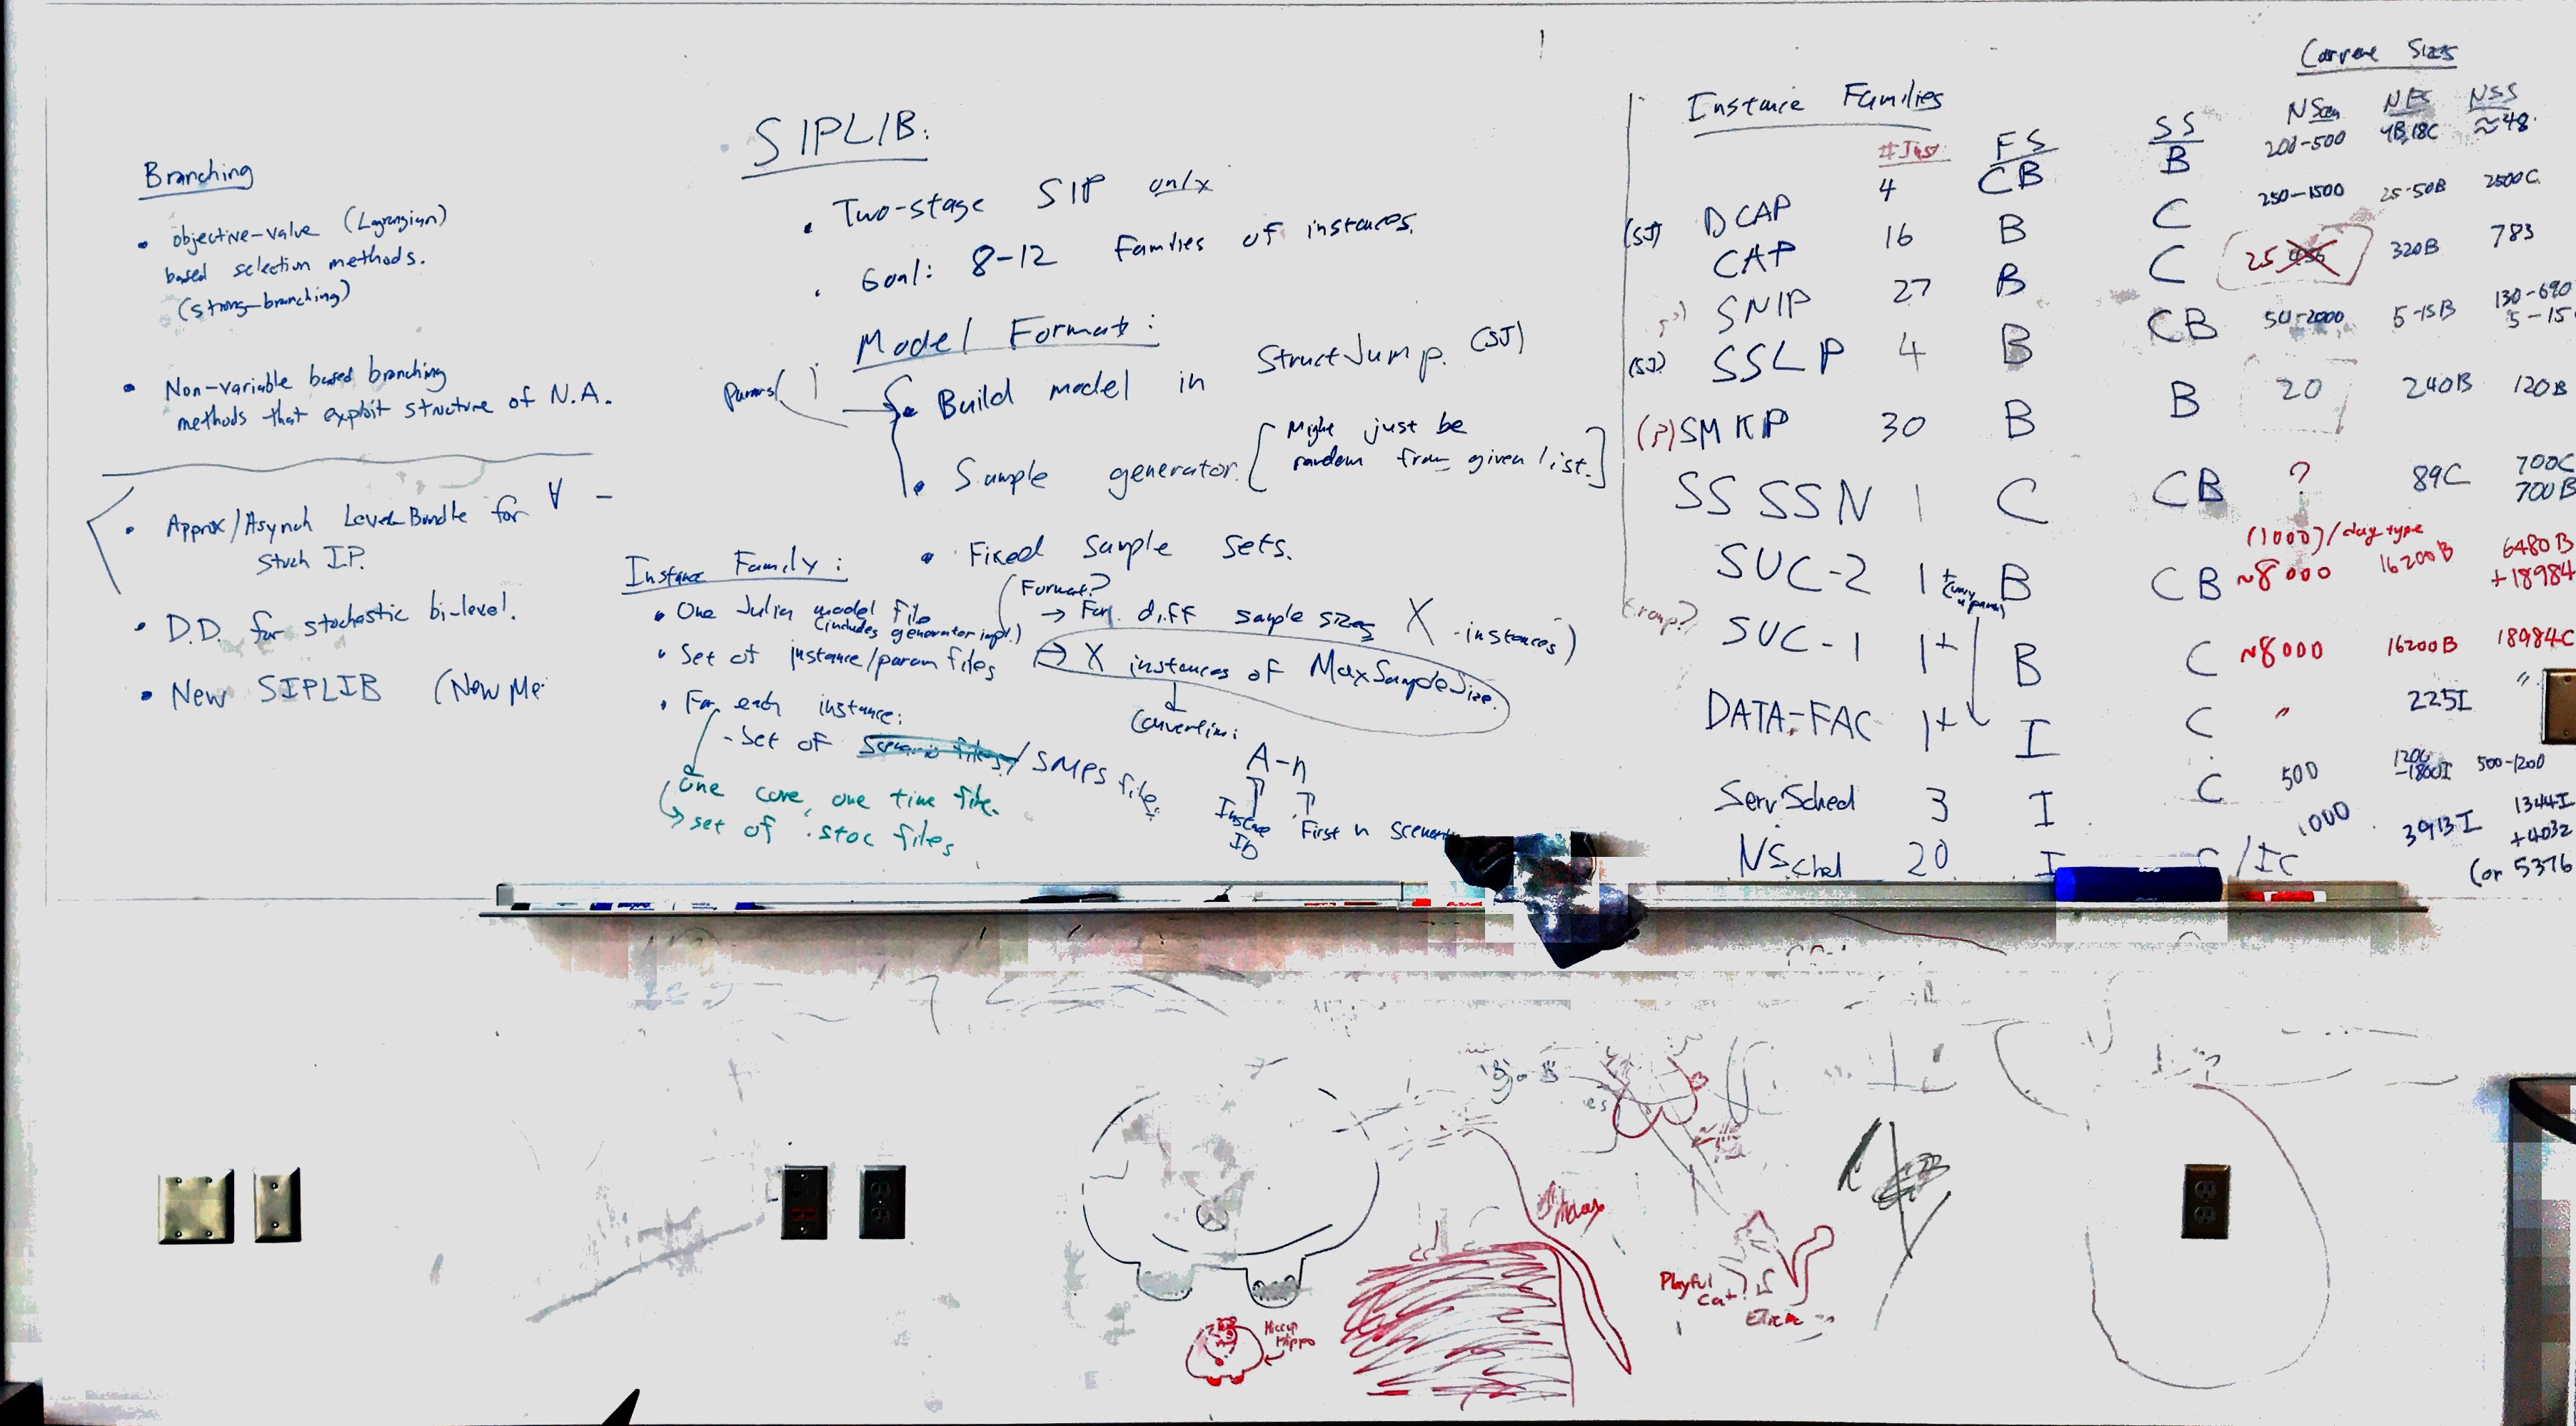 Branching
• objective-value (Lagrangian)
based selection methods.
(strong-branching)
• Non-variable based branching
methods that exploit structure of N.A.
• Approx/Asynch Level Bundle for ∀ -
Stoch IP.
• D.D. for stochastic bi-level.
• New SIPLIB (New Me
SIPLIB:
• Two-stage SIP only
• Goal: 8-12 Families of instances.
Model Format:
Params
• Build model in StructJump. (SJ)
• Sample generator. [Might just be
random from given list.]
• Fixed Sample Sets.
Instance Family:
• One Julia model file
(includes generator impl.)
• Set of instance/param files
• For each instance:
- Set of scenario files/SMPS file.
One core, one time file.
→ set of .stoc files
(Format?
→ For diff sample sizes X -instances)
→ X instances of MaxSampleSize.
Convention:
A-n
Instance
ID
First n scenarios
Instance Families
Current Sizes
#Inst FS SS NScen NFS NSS
(SJ) DCAP 4 CB B 200-500 4B,18C ≈48
CAP 16 B C 250-1500 25-50B 2500C
SNIP 27 B C 25 456 320B 783
(SJ) SSLP 4 B CB 50-2000 5-15B 130-690
5-15
(?) SMKP 30 B B 20 240B 120B
SS SSN 1 C CB ? 89C 700C
700B
SUC-2 1+ B CB (1000)/day type
~8000 16200B 6480B
+18984
SUC-1 1+ B C ~8000 16200B 18984C
DATA-FAC 1+ I C " 225I "
ServSched 3 I C 500 500-1200
NSched 20 I C/IC 1000 3913I 1344I
+4032
(or 5376
Hiccup
Hippo
Playful
Cat